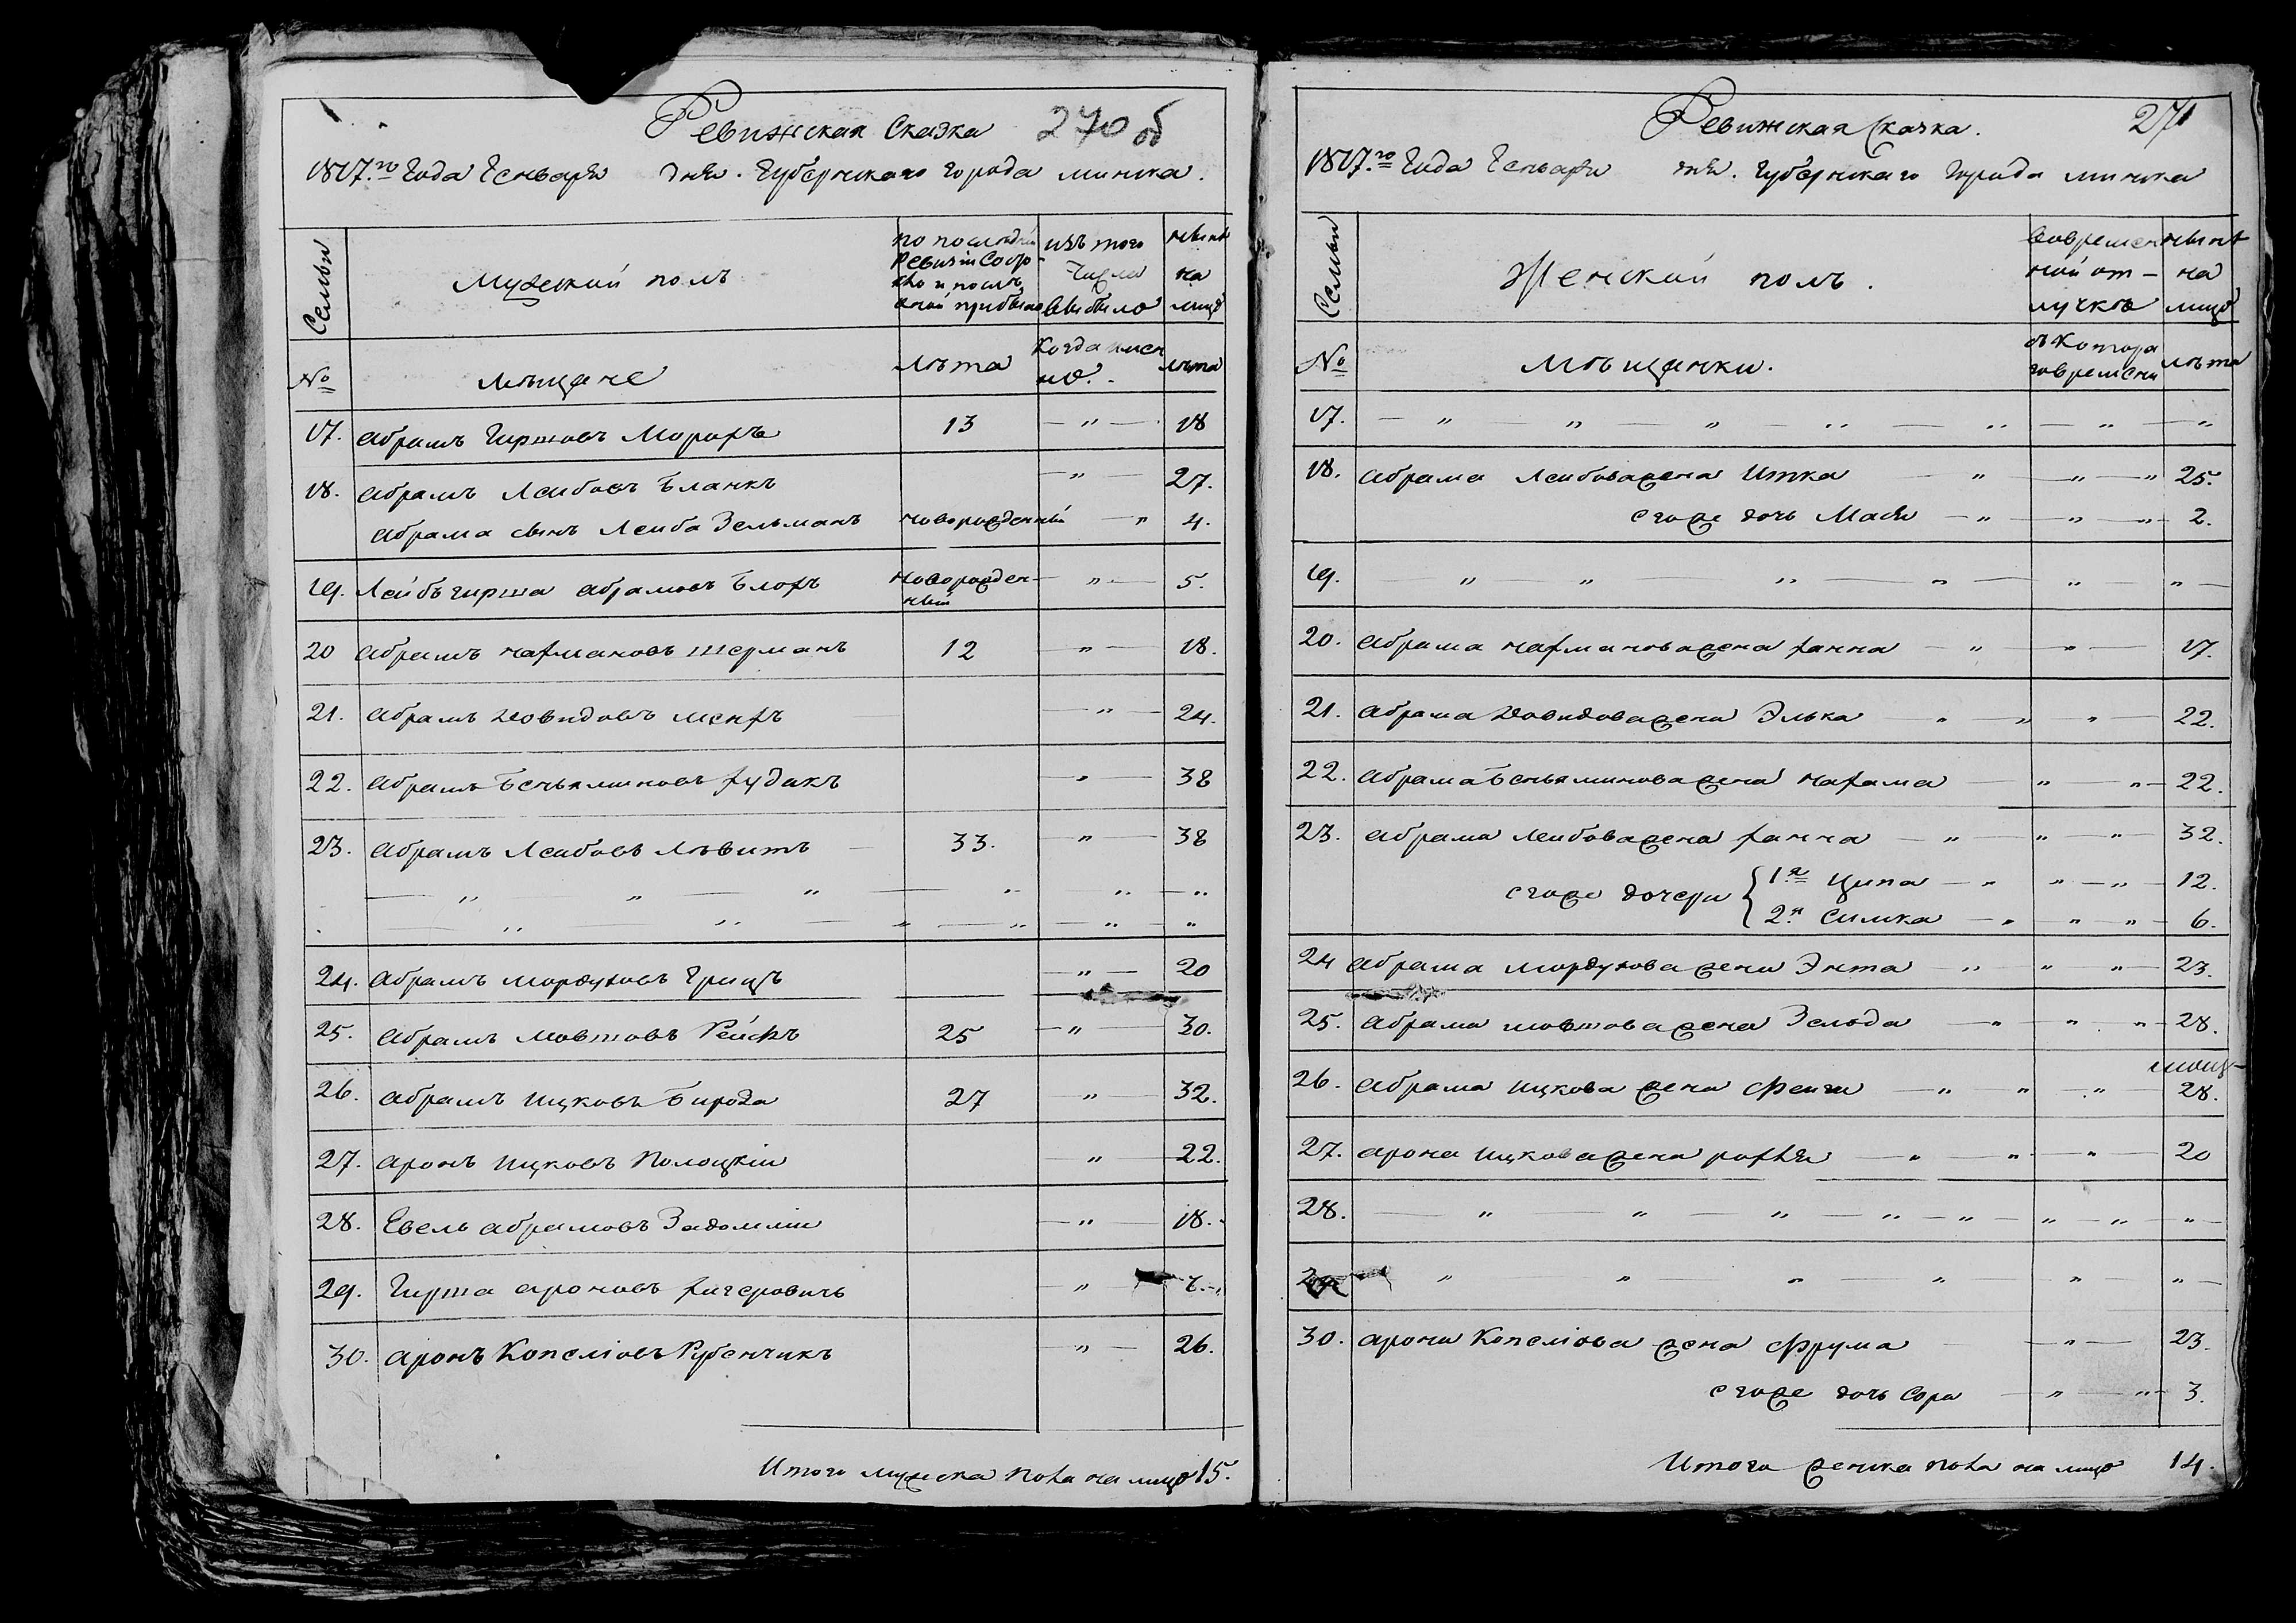 Ревижская Сказка 270 об
1817.го Года Генваря дня. Губернскаго города минска.
Семьи
Мужеский полъ
по последней Ревизіи Состояло и после оной прибыло
изъ того числа выбыло
ныне на лицо
№
мещане
лета
Когда именно.
лета
17. абрамъ Гиршовъ Морохъ 13 — „ — 18
18. абрамъ Леибовъ Бланкъ — „ — 27.
абрама сынъ Леиба Зельманъ новорожденный — „ 4.
19. Лейбъ гирша абрамовъ Блохъ новорожденный — „ — 5.
20 абрамъ нахмановъ шерманъ 12 — „ — 18.
21. абрамъ Довидовъ — „ — 24.
22. абрамъ Беньяминовъ худакъ „ — 38
23. абрамъ Леибовъ Левитъ — 33. — „ — 38
— „ — „ — „ — „ „ — „
„ — „ — „ — „ — „ — „
24. абрамъ мордуховъ Грицъ — „ — 20
25. абрамъ мовшовъ 25 — „ — 30.
26. абрамъ ицковъ Бирода 27 „ — 32.
27. аронъ ицковъ Полоцкій — „ — 22.
28. Евель абрамовъ — „ — 18.
29. Гирша ароновъ хигеровичъ — „ —
30. аронъ Копеліовъ Рубенчикъ — „ — 26.
Итого мужеска пола на лицо 15.
Ревижская Сказка. 271
1817.го Года Генваря дня. губернскаго города минска
Семьи
Женский полъ.
во временной отлучке
ныне на лицо
№
мещанки.
съ котораго времени
лета
17. — „ — „ — „ — „ — „ — „ — „
18. абрама Леибова жена Итка — „ — „ — „ 25.
его же дочь Мася — „ — „ — „ — 2.
19. „ „ „ — „ — „ — „ —
20. абрама нахманова жена ханна — „ — „ — 17.
21. абрама Довидова жена Элька — „ „ „ — 22.
22. абрама Беньяминова жена нахама — „ — „ — 22.
23. абрама леибова жена ханна — „ „ — „ — 32.
его же дочери { 1я Ципа — „ „ — „ — 12.
2я Симка — „ „ — „ — 6.
24 абрама мордухова жена Энта — „ „ „ — 23.
25. абрама мовшова жена Зельда — „ „ „ — 28.
26. абрама ицкова жена Феига — „ „ „ — 28.
27. арона ицкова жена — „ — „ „ — 20
28. — „ — „ — „ — „ — „ — „ — „ — „ —
„ — „ — „ — „ „ — „ —
30. арона Копеліова жена Фрума — „ — 23.
его же дочь Сора — „ — „ — 3.
Итого женска пола на лицо 14.